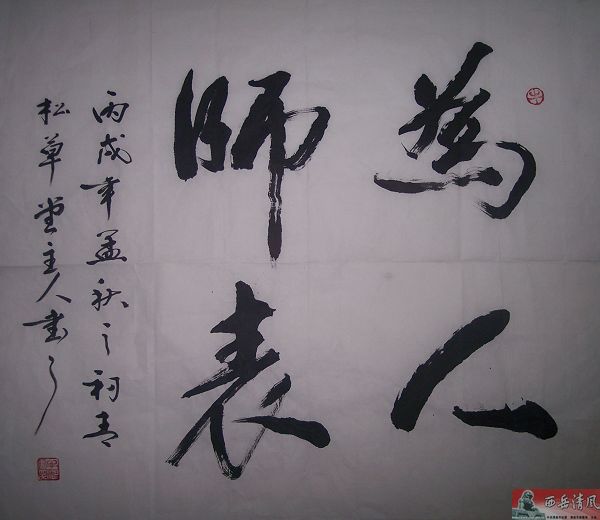 為人
師表
丙戌年孟秋之初青
松草堂主人書
西岳清风